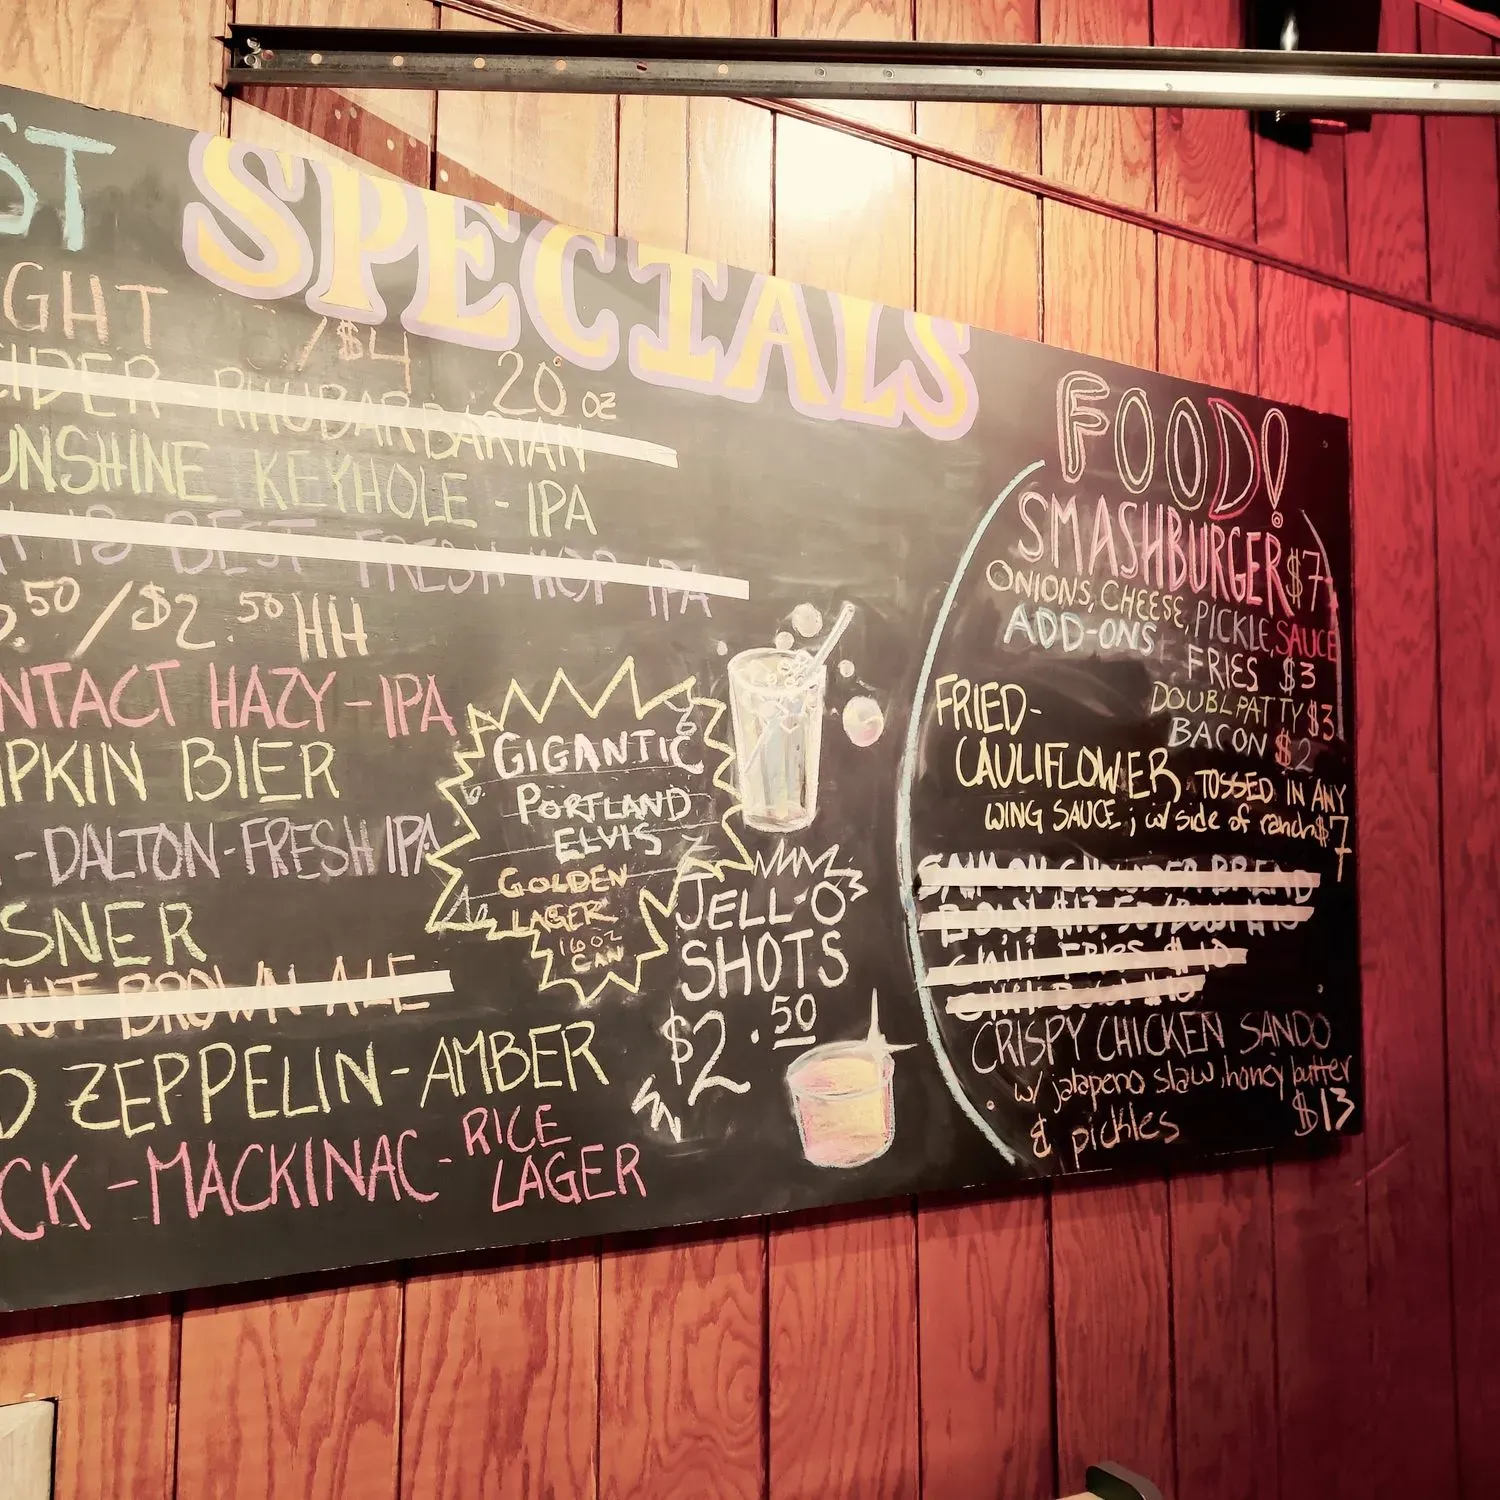 ST SPECIALS
GHT /$4
20 oz
CIDER - RHUBARBARIAN
UNSHINE KEYHOLE - IPA
BEST FRESH HOP IPA
.50/$2.50 HH
NTACT HAZY - IPA
MPKIN BIER
- DALTON - FRESH IPA
SNER
NUT BROWN ALE
D ZEPPELIN - AMBER
ACK - MACKINAC - RICE
LAGER
GIGANTIC
PORTLAND
ELVIS
GOLDEN
LAGER
16 OZ
CAN
JELL-O
SHOTS
$2.50
FOOD!
SMASHBURGER $7
ONIONS, CHEESE, PICKLE, SAUCE
ADD-ONS
FRIES $3
DOUBL PATTY $3
BACON $2
FRIED-
CAULIFLOWER TOSSED IN ANY
WING SAUCE; w/ side of ranch $7
SALMON CHOWDER BREAD
BOWL
CHILI FRIES $10
CHILI BOWL $10
CRISPY CHICKEN SANDO
w/ jalapeno slaw, honey butter
& pickles $13